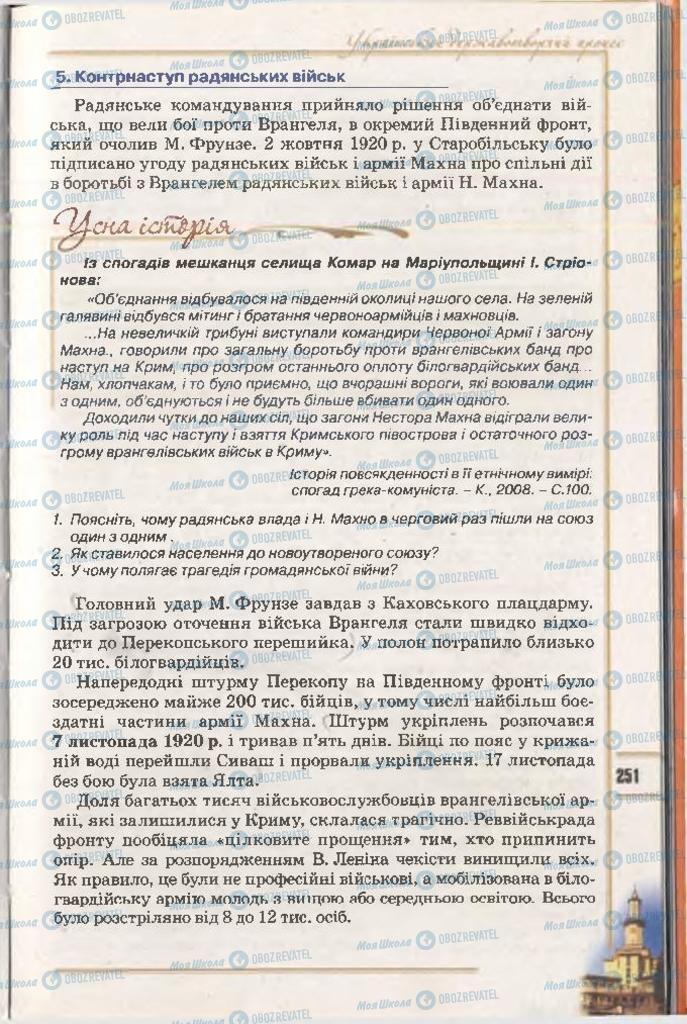 Український державотворчий процес
5. Контрнаступ радянських військ
Радянське командування прийняло рішення об’єднати вій-
ська, що вели бої проти Врангеля, в окремий Південний фронт,
який очолив М. Фрунзе. 2 жовтня 1920 р. у Старобільську було
підписано угоду радянських військ і армії Махна про спільні дії
в боротьбі з Врангелем радянських військ і армії Н. Махна.
Усна історія
Із спогадів мешканця селища Комар на Маріупольщині І. Стріо-
нова:
«Об’єднання відбувалося на південній околиці нашого села. На зеленій
галявині відбувся мітинг і братання червоноармійців і махновців.
...На невеличкій трибуні виступали командири Червоної Армії і загону
Махна., говорили про загальну боротьбу проти врангелівських банд про
наступ на Крим, про розгром останнього оплоту білогвардійських банд...
Нам, хлопчакам, і то було приємно, що вчорашні вороги, які воювали один
з одним, об’єднуються і не будуть більше вбивати один одного.
Доходили чутки до наших сіл, що загони Нестора Махна відіграли вели-
ку роль під час наступу і взяття Кримського півострова і остаточного роз-
грому врангелівських військ в Криму».
Історія повсякденності в її етнічному вимірі:
спогад грека-комуніста. – К., 2008. – С.100.
1. Поясніть, чому радянська влада і Н. Махно в черговий раз пішли на союз
один з одним .
2. Як ставилося населення до новоутвореного союзу?
3. У чому полягає трагедія громадянської війни?
Головний удар М. Фрунзе завдав з Каховського плацдарму.
Під загрозою оточення війська Врангеля стали швидко відхо-
дити до Перекопського перешийка. У полон потрапило близько
20 тис. білогвардійців.
Напередодні штурму Перекопу на Південному фронті було
зосереджено майже 200 тис. бійців, у тому числі найбільш боє-
здатні частини армії Махна. Штурм укріплень розпочався
7 листопада 1920 р. і тривав п’ять днів. Бійці по пояс у крижа-
ній воді перейшли Сиваш і прорвали укріплення. 17 листопада
без бою була взята Ялта.
251
Доля багатьох тисяч військовослужбовців врангелівської ар-
мії, які залишилися у Криму, склалася трагічно. Реввійськрада
фронту пообіцяла «цілковите прощення» тим, хто припинить
опір. Але за розпорядженням В. Леніна чекісти винищили всіх.
Як правило, це були не професійні військові, а мобілізована в біло-
гвардійську армію молодь з вищою або середньою освітою. Всього
було розстріляно від 8 до 12 тис. осіб.